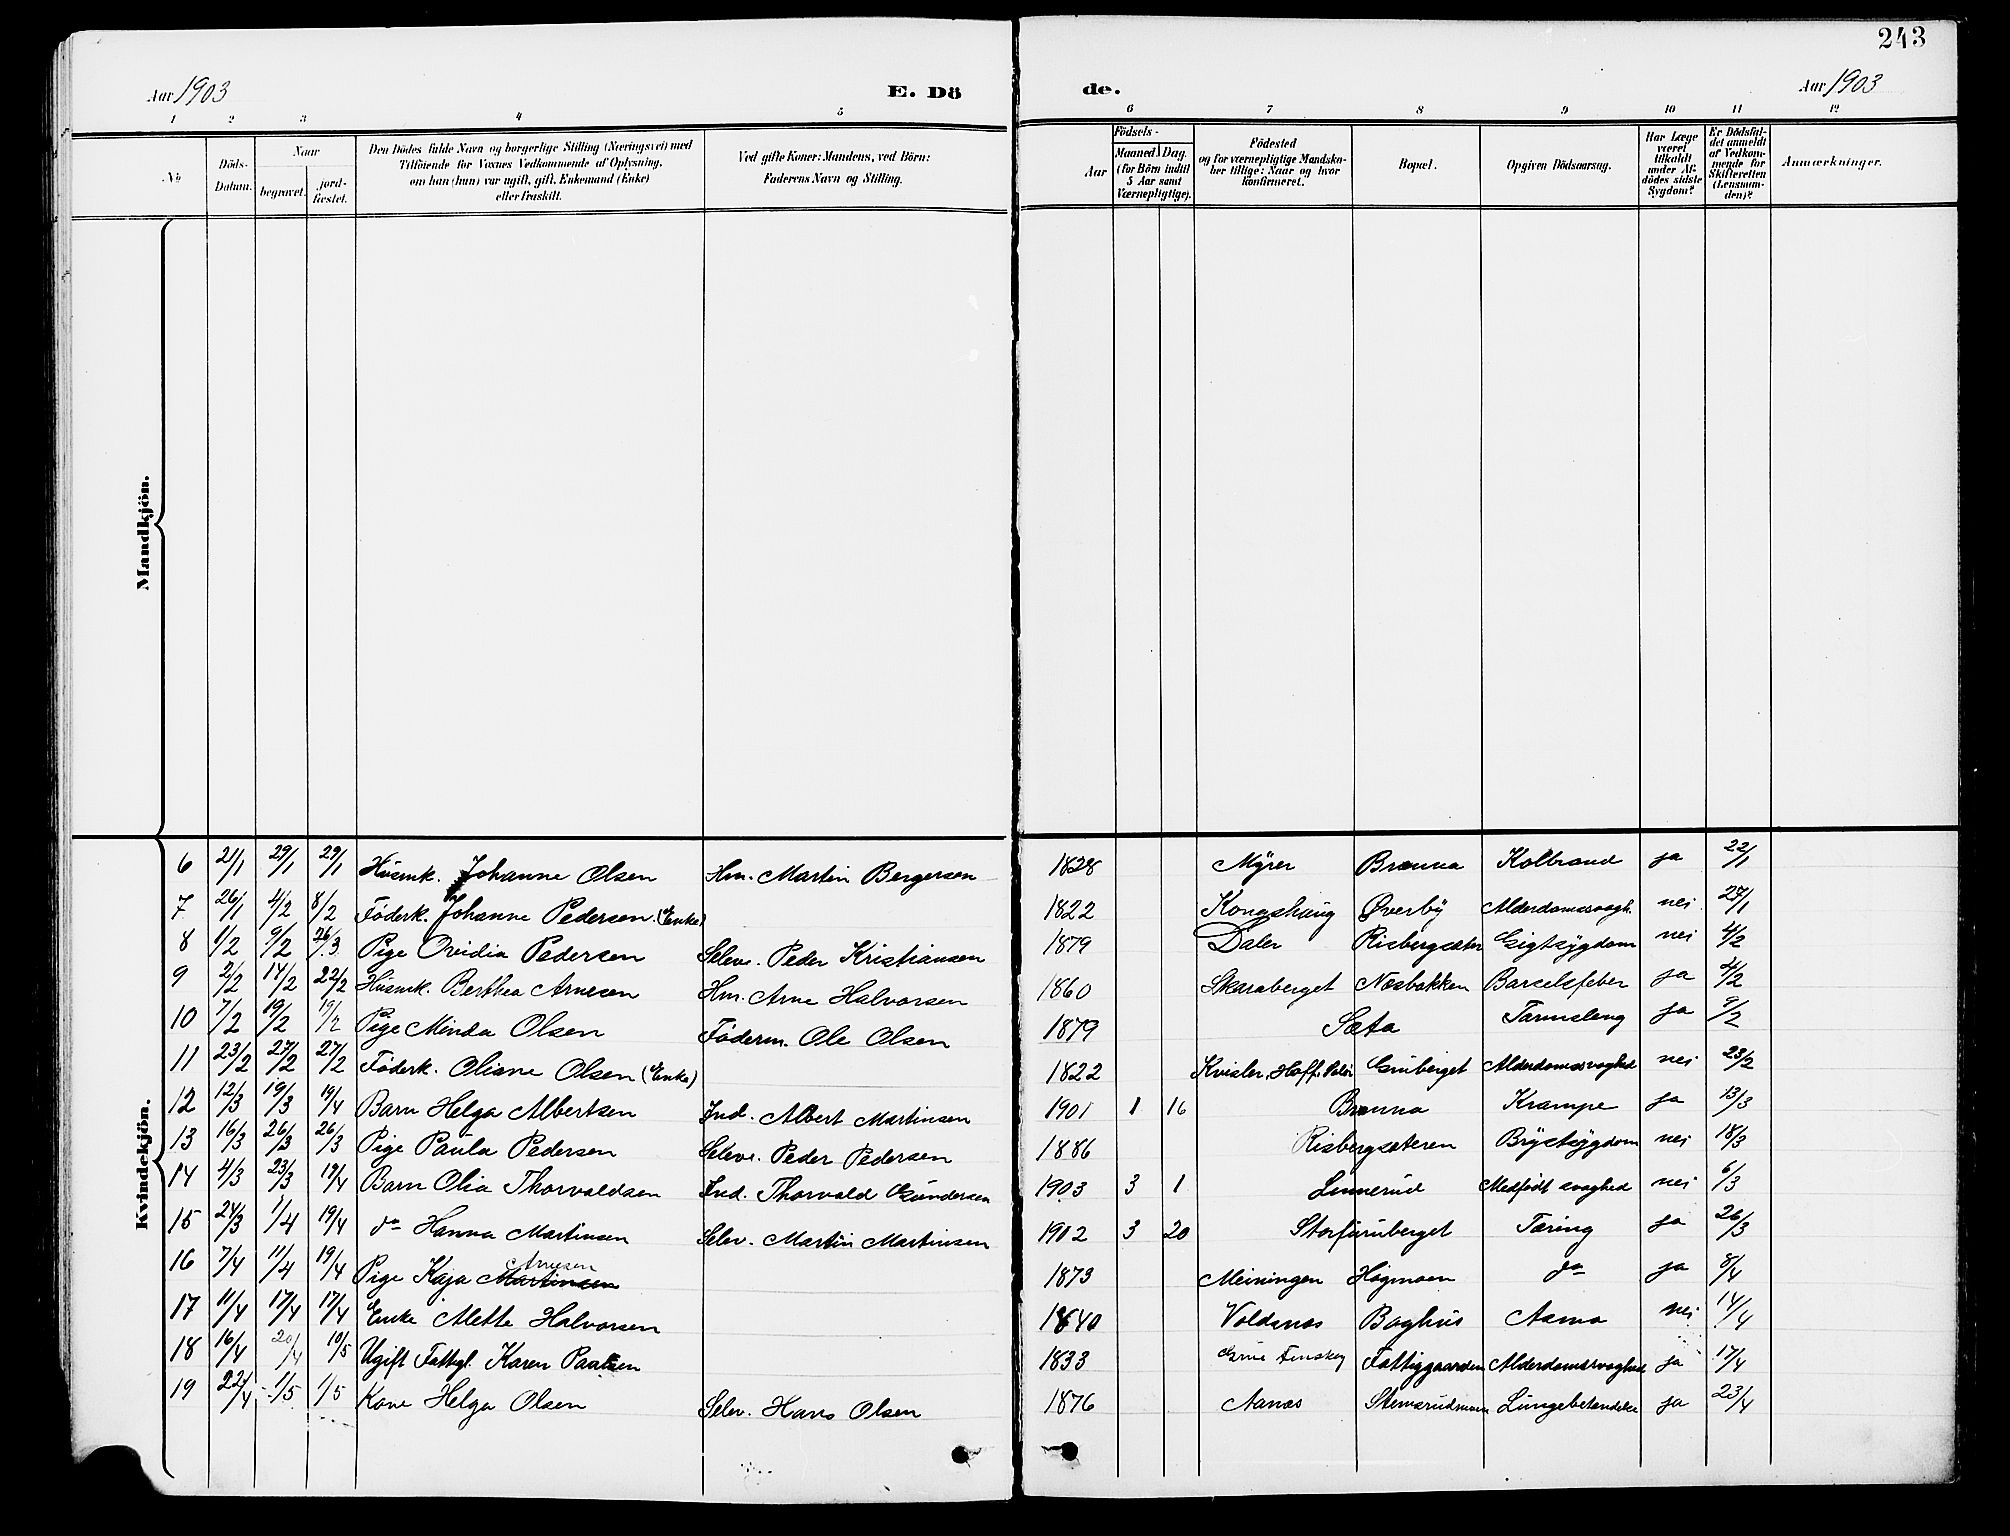 243
Aar 1903 E. Dö de. Aar 1903
1 2 3 4 5 6 7 8 9 10 11 12
No
Döds-Datum.
Naar begravet. jord-fæstet.
Den Dödes fulde Navn og borgerlige Stilling (Næringsvei) med Tilföiende for Voxnes Vedkommende af Oplysning, om han (hun) var ugift, gift, Enkemand (Enke) eller fraskilt.
Ved gifte Koner: Mandens, ved Börn: Faderens Navn og Stilling.
Födsels-
Aar Maaned Dag. (for Börn indtil 5 Aar samt Værnepligtige).
Födested og for værnepligtige Mandska-ber tillige: Naar og hvor konfirmeret.
Bopæl.
Opgiven Dödsaarsag.
Har Læge været tilkaldt under Af-dödes sidste Sygdom?
Er Dödsfal-det anmeldt af Vedkom-mende for Skifteretten (Lensman-den)?
Anmærkninger.
Mandkjön.
Kvindekjön.
6 21/1 29/1 29/1 Husmk. Johanne Olsen Hm. Martin Bergersen 1828 Myrer Brænna Kolbrand ja 22/1
7 26/1 4/2 8/2 Føderk. Johanne Pedersen (Enke) 1822 Kongshaug Øverby Alderdomssvagh. nei 27/1
8 1/2 9/2 26/3 Pige Ovidia Pedersen Selve. Peder Kristiansen 1879 Daler Risbergsæter Gigtsygdom nei 4/2
9 2/2 14/2 22/2 Husmk. Berthea Arnesen Hm. Arne Halvorsen 1860 Skaraberget Næsbakken Barselsfeber ja 4/2
10 7/2 19/2 19/2 Pige Minda Olsen Føderm. Ole Olsen 1879 Sæta Tarmsleng ja 9/2
11 23/2 27/2 27/2 Føderk. Oliane Olsen (Enke) 1822 Kvisler, Hoff, Gruberget Alderdomssvaghed nei 23/2
12 12/3 19/3 19/4 Barn Helga Albertsen Ind. Albert Martinsen 1901 1 16 Brænna Krampe ja 13/3
13 16/3 26/3 26/3 Pige Paula Pedersen Selve. Peder Pedersen 1886 Risbergsæteren Brystsygdom nei 18/3
14 4/3 23/3 19/4 Barn Olia Thorvaldsen Ind. Thorvald Gundersen 1903 3 1 Linnerud Medfødt svaghed nei 6/3
15 24/3 1/4 19/4 do Hanna Martinsen Selv. Martin Martinsen 1902 3 20 Storfuruberget Tæring ja 26/3
16 7/4 11/4 19/4 Pige Kaja Martinsen Arnesen 1873 Meiningen Høgmoen do ja 8/4
17 11/4 17/4 17/4 Enke Mette Halvorsen 1840 Voldsnæs Baghus Asma nei 14/4
18 16/4 20/4 10/5 Ugift Fattgl. Karen Paulsen 1833 Grue Finskog Fattiggaarden Alderdomssvaghed ja 17/4
19 22/4 1/5 1/5 Kone Helga Olsen Selv. Hans Olsen 1876 Aanæs Stemsrudmoen Lungebetændelse ja 23/4